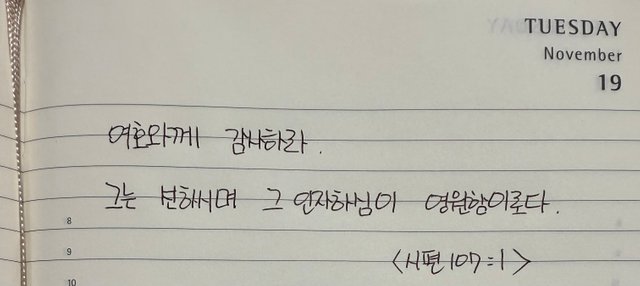 TUESDAY
November
19
여호와께 감사하라.
그는 변하시며 그 인자하심이 영원함이로다.
8
9
<시편 107:1>
10